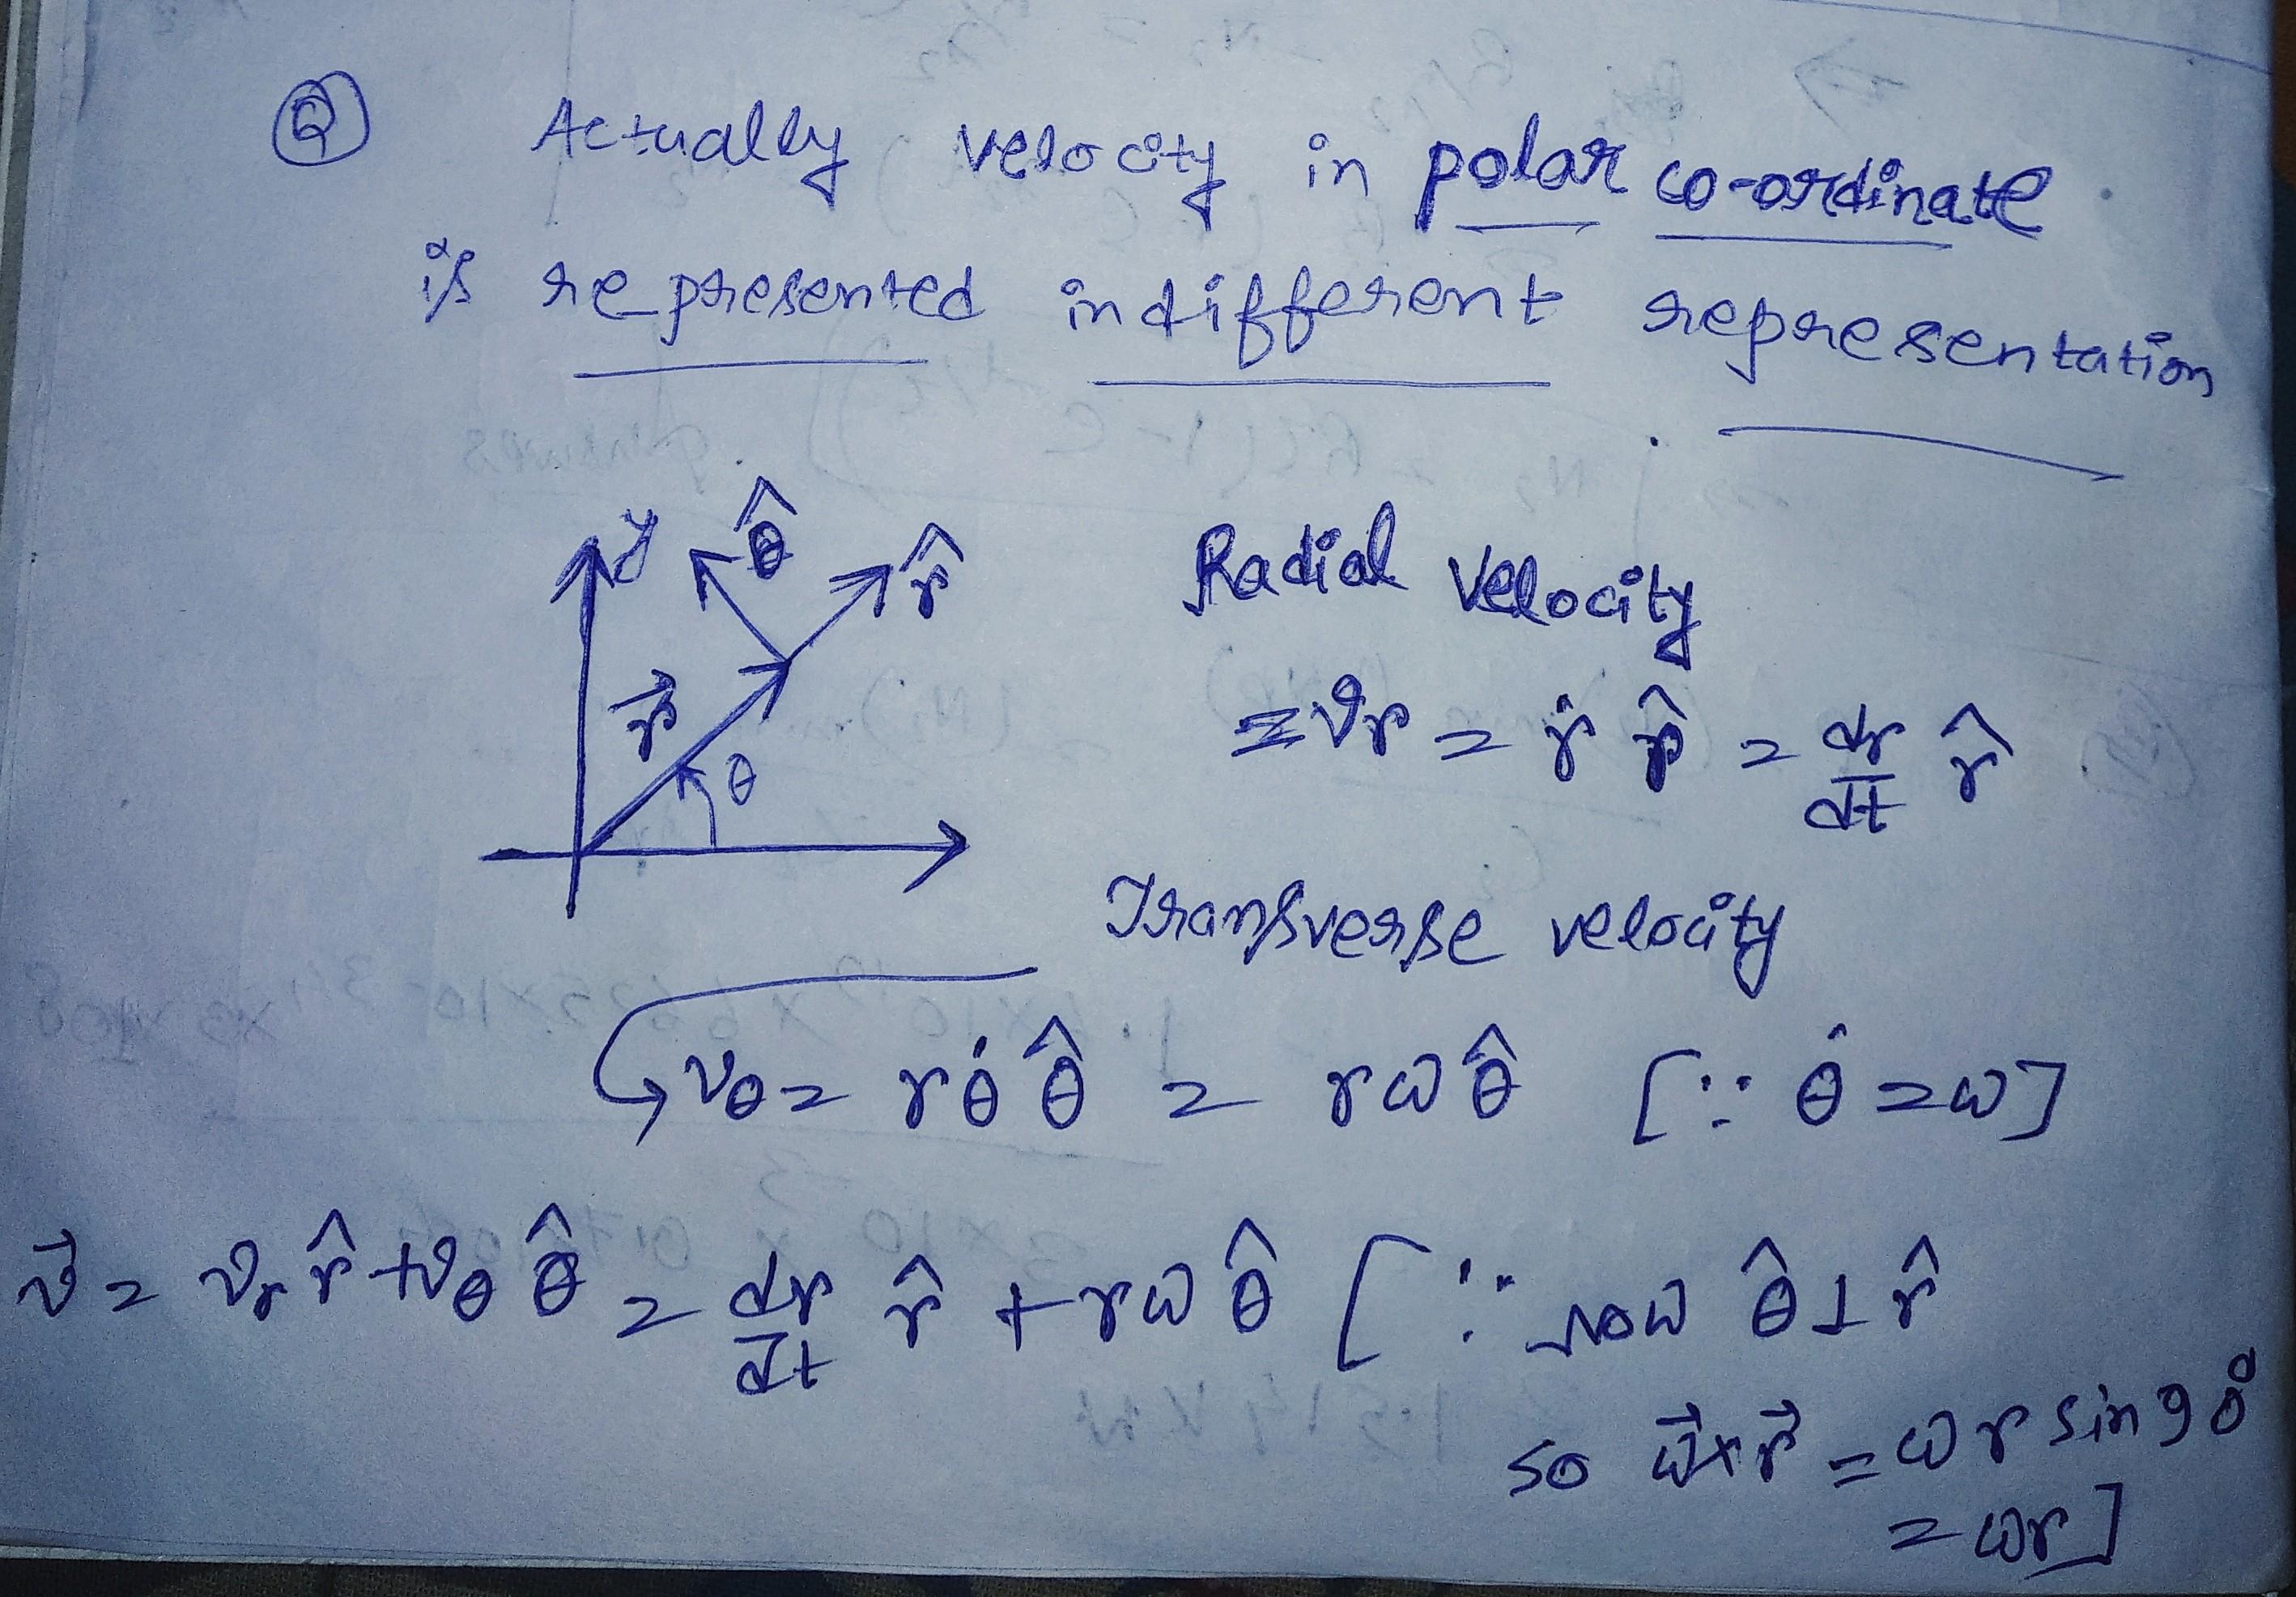 Q Actually velocity in polar co-ordinate
is represented in different representation.
y θ̂ r̂
r⃗ θ
Radial velocity
= vr = ṙ r̂ = dr/dt r̂
Transverse velocity
vθ = rθ̇ θ̂ = rω θ̂ [∵ θ̇ = ω]
v⃗ = vr r̂ + vθ θ̂ = dr/dt r̂ + rω θ̂ [∵ now θ̂ ⊥ r̂
so ω⃗ × r⃗ = ωr sin 90°
= ωr]